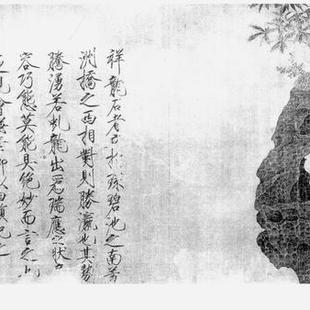 祥龍石者立於環碧池之南芳
洲橋之西相對則勝瀛也其勢
騰湧若虬龍出為瑞應之狀奇
容巧態莫能具絕妙而言之也